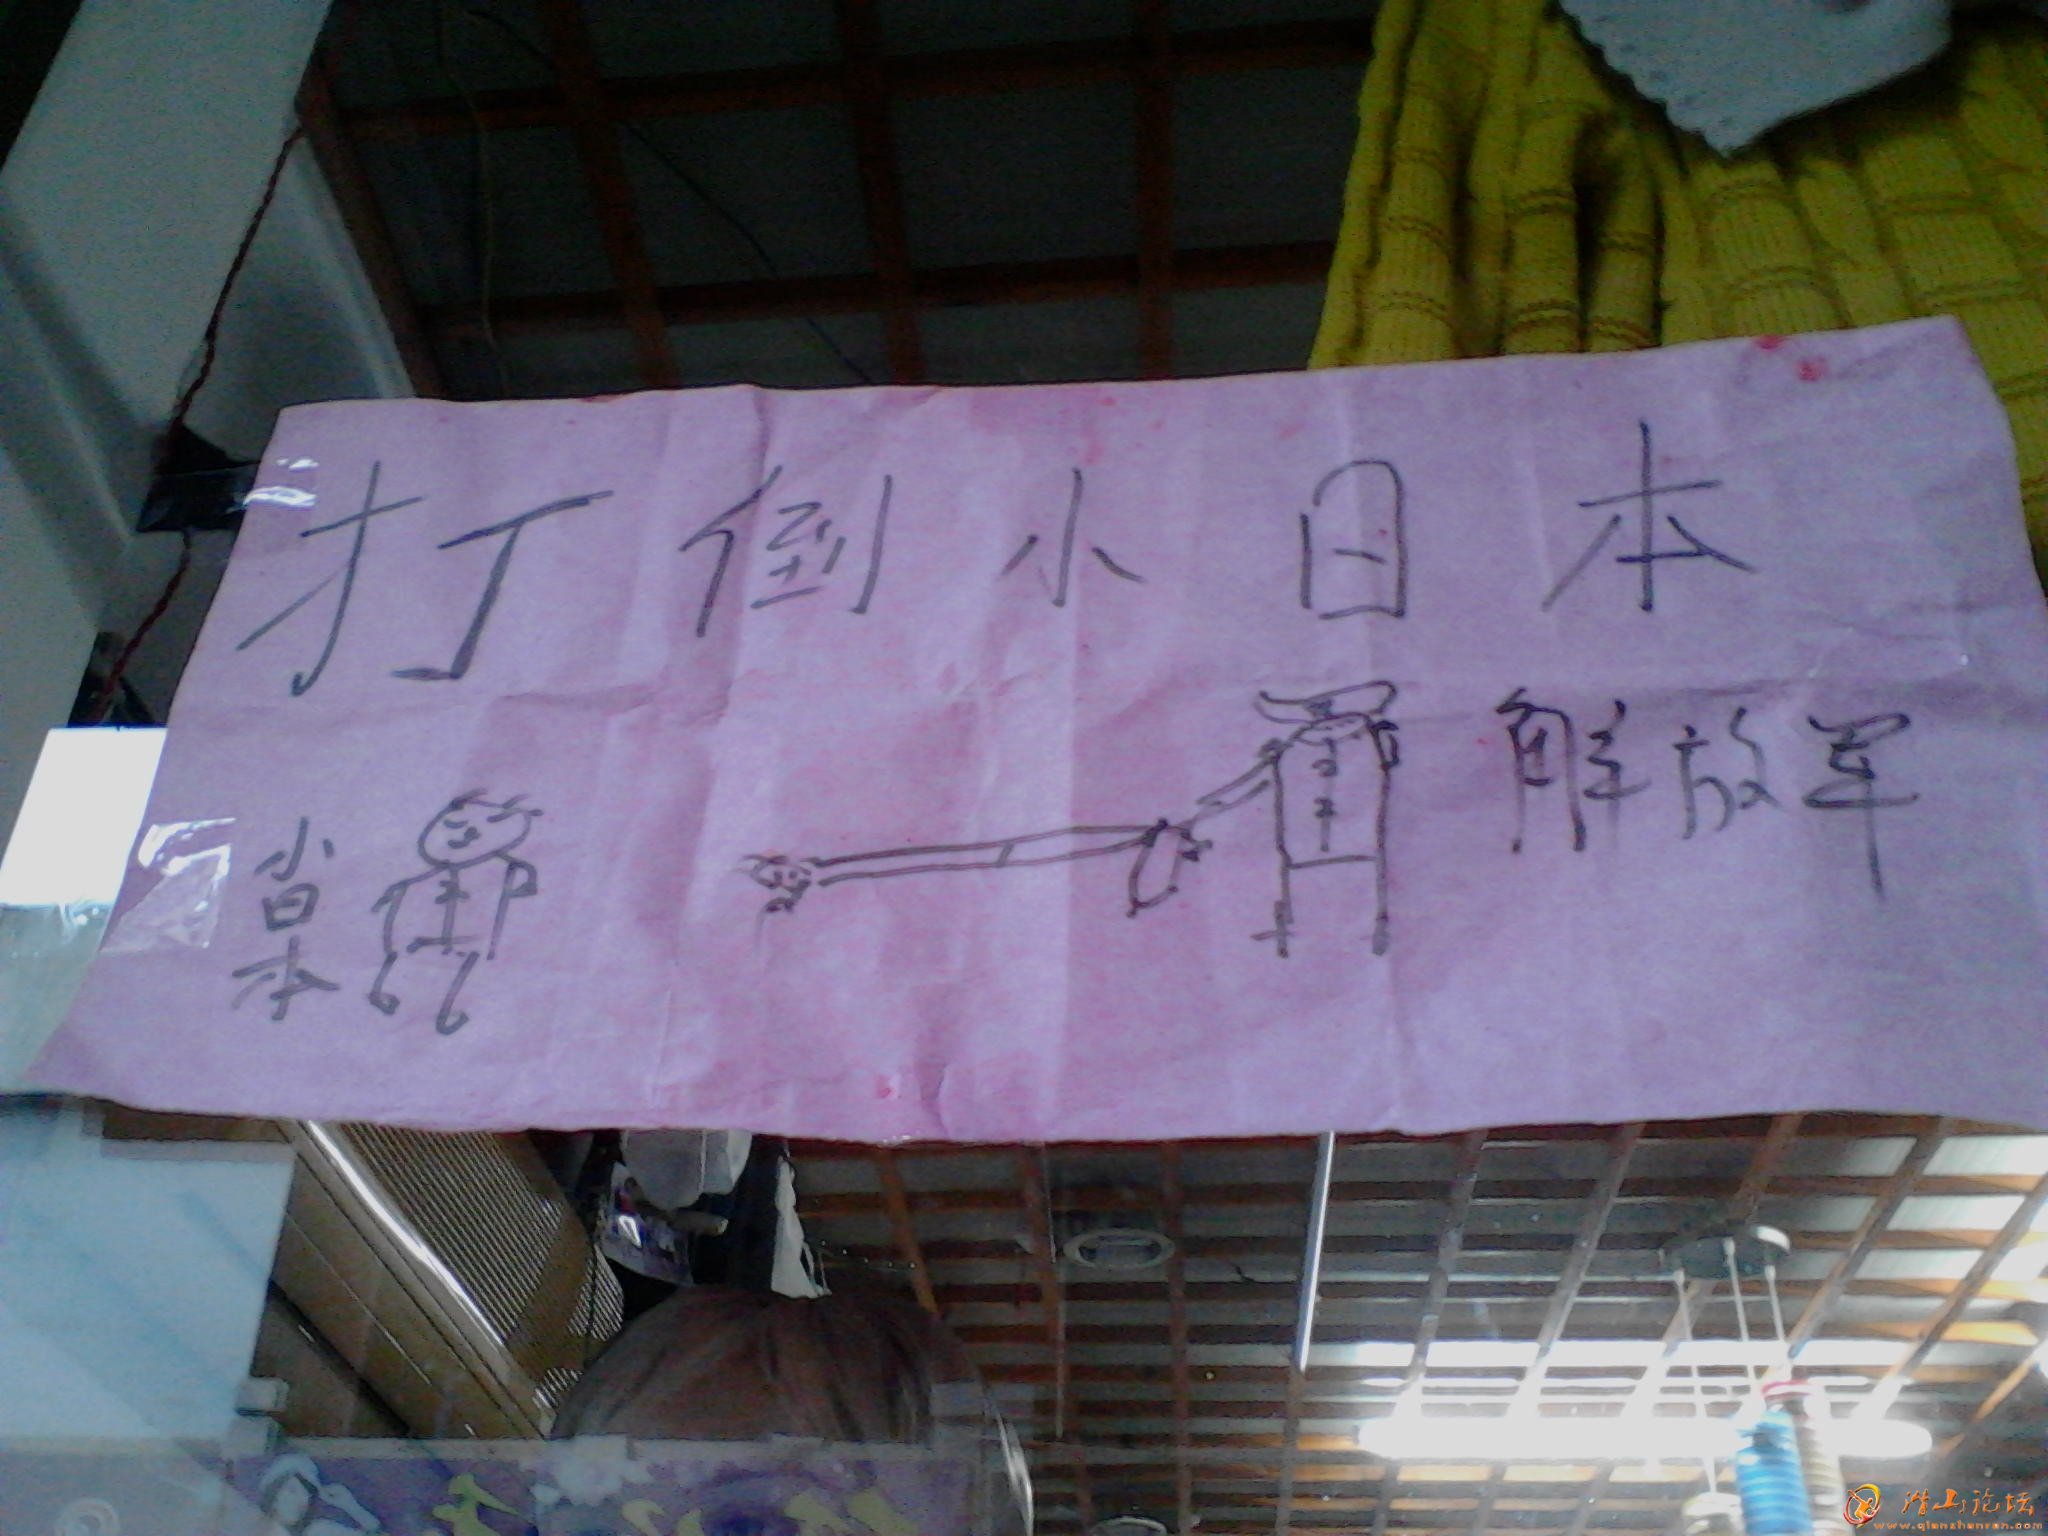 打倒小日本
解放军
小日本
潜山论坛
www.qianshanren.com